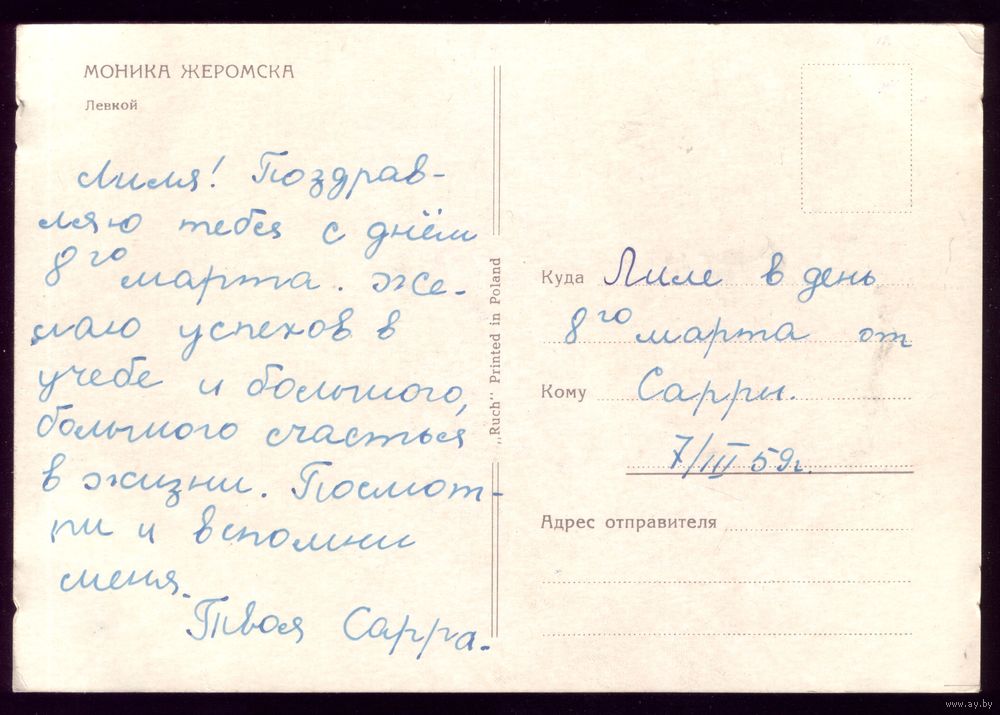 МОНИКА ЖЕРОМСКА
Левкой
Лиля! Поздрав-
ляю тебя с днём
8го марта. Же-
лаю успехов в
учебе и большого,
большого счастья
в жизни. Посмот-
ри и вспомни
меня.
Твоя Сарра.
„Ruch" Printed in Poland
Куда Лиле в день
8го марта от
Кому Сарры.
7/III 59г.
Адрес отправителя
www.ay.by